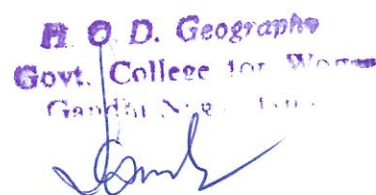 H. O. D. Geography
Govt. College for Women
Gandhi Nagar